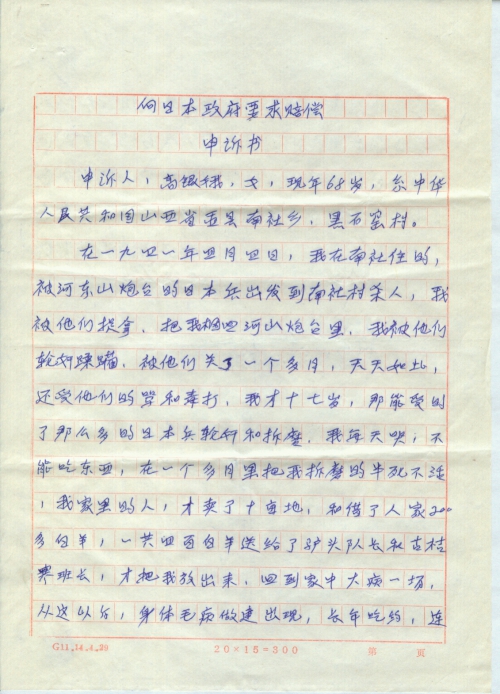 向日本政府要求赔偿
申诉书
申诉人，高银娥，女，现年68岁，系中华
人民共和国山西省盂县南社乡，黑石窑村。
在一九四一年四月四日，我在南社住的，
被河东山炮台的日本兵出发到南社村杀人，我
被他们捉拿，把我捆四河山炮台里，我被他们
轮奸蹂躏，被他们关了一个多月，天天如此，
还受他们的骂和毒打，我才十七岁，那能受的
了那么多的日本兵轮奸和折磨，我每天哭，不
能吃东西，在一个多月里把我折磨的半死不活
，我家里的人，才卖了十亩地，和借了人家200
多白羊，一共四百白羊送给了驴头队长和古桔
班长，才把我放出来，回到家中大病一场，
从这以后，身体毛病做建出现，长年吃药，连
G11.14.4.29
20×15=300
第 页